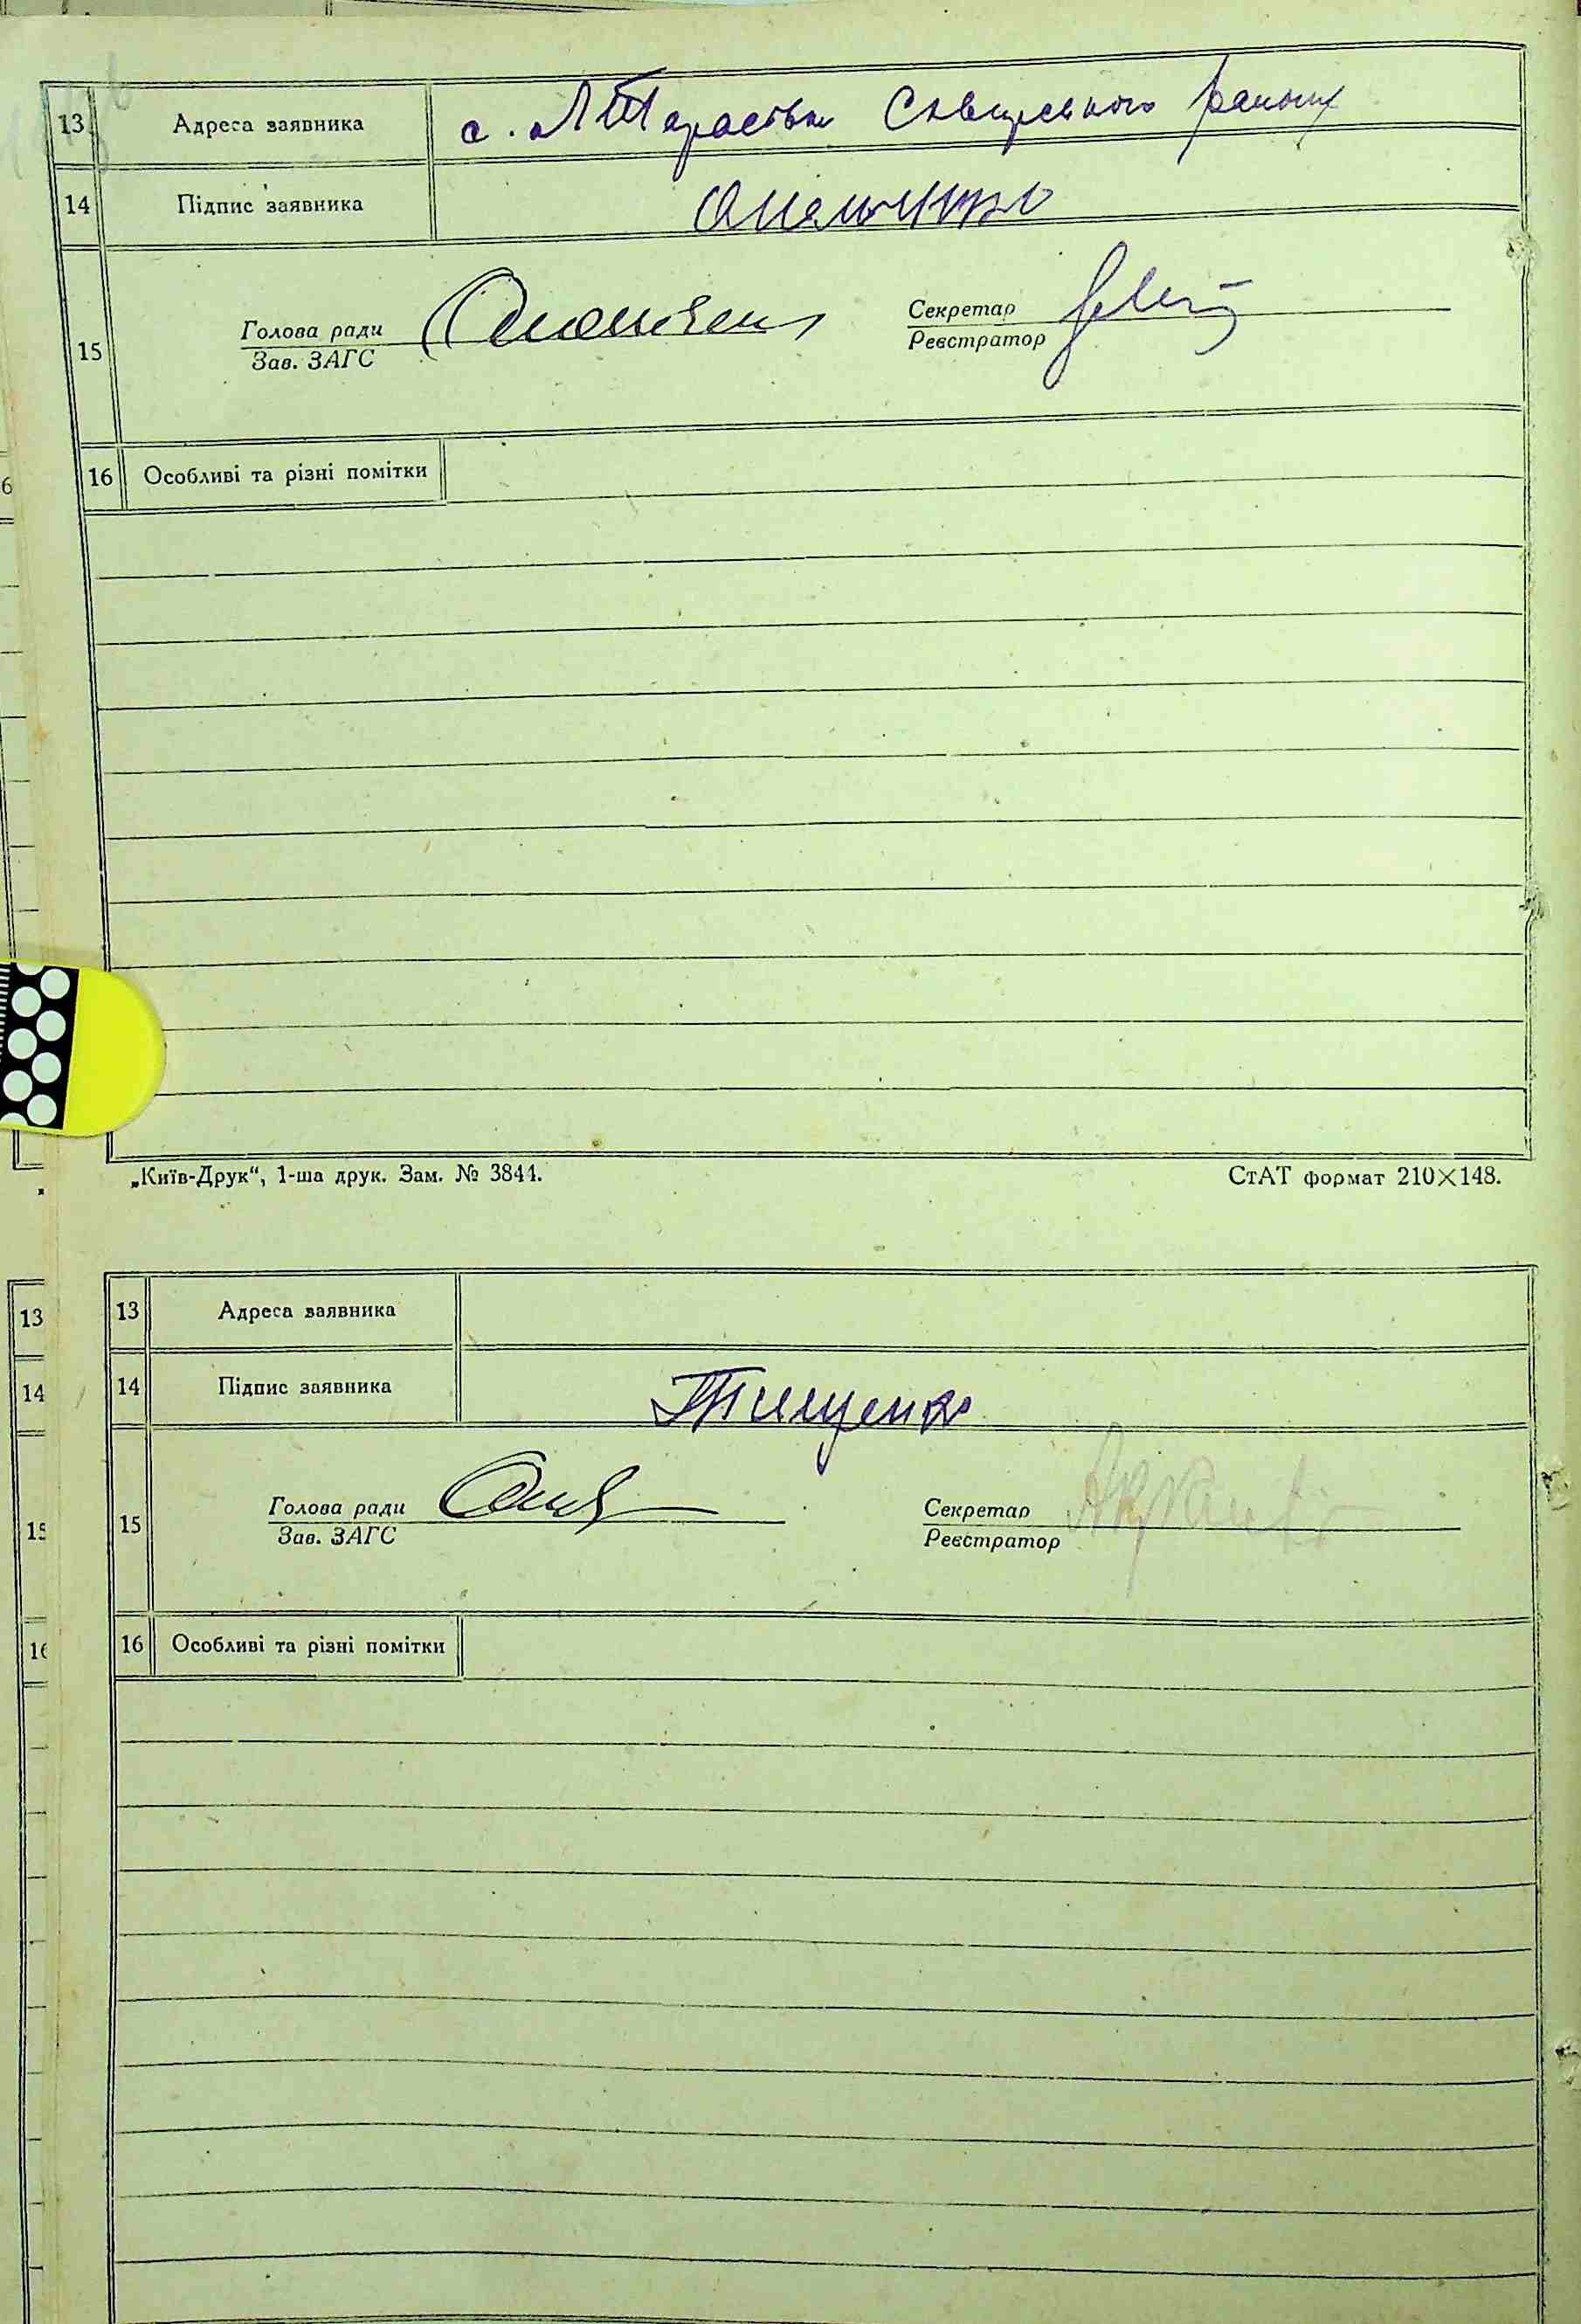 13 Адреса заявника с. Л Тарасівка Сквирського району
14 Підпис заявника
15 Голова ради
Зав. ЗАГС
Секретар
Реєстратор
16 Особливі та різні помітки
„Київ-Друк“, 1-ша друк. Зам. № 3844. СтАТ формат 210×148.
13 13 Адреса заявника
14 14 Підпис заявника Тищенко
15 15 Голова ради
Зав. ЗАГС
Секретар
Реєстратор
16 16 Особливі та різні помітки